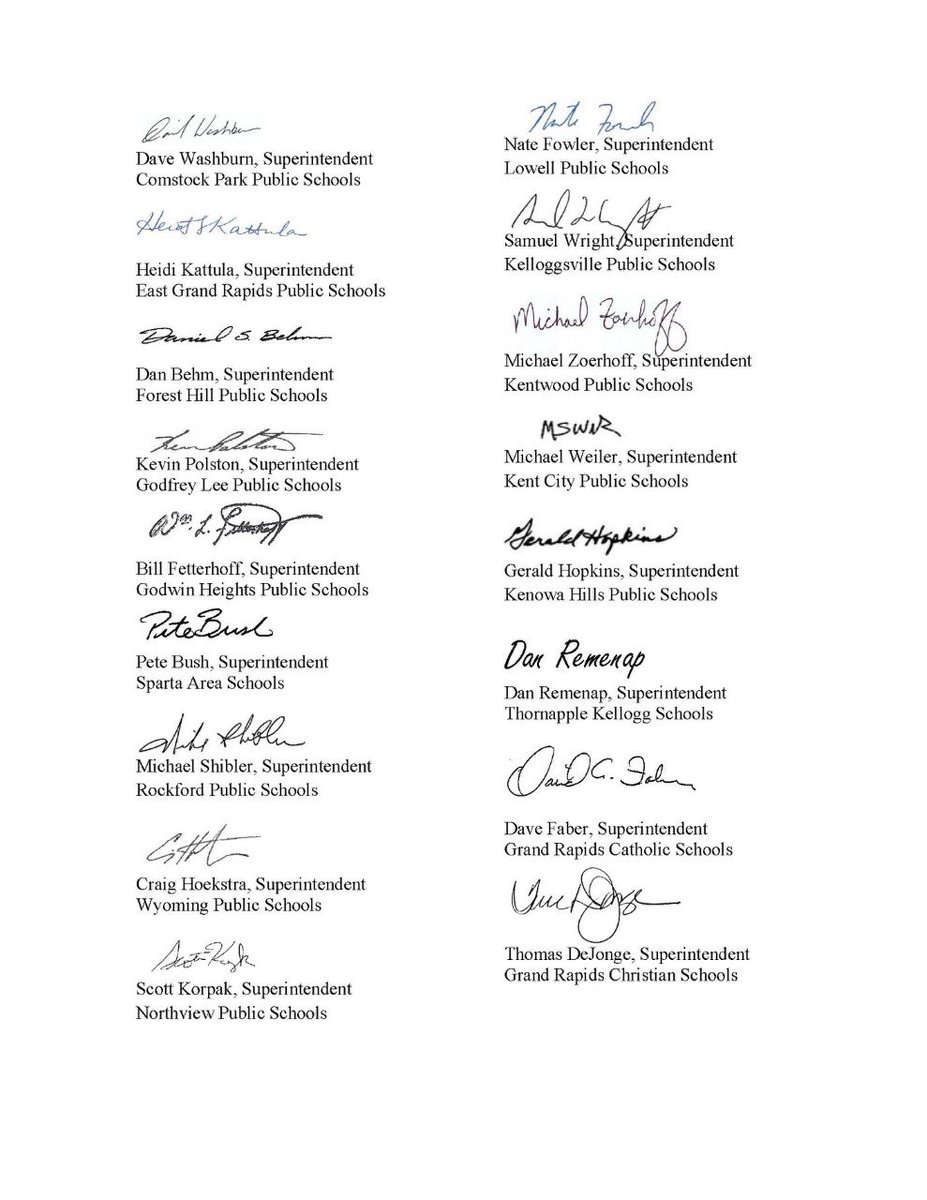 Dave Washburn, Superintendent
Comstock Park Public Schools
Heidi Kattula
Heidi Kattula, Superintendent
East Grand Rapids Public Schools
Daniel S. Behm
Dan Behm, Superintendent
Forest Hill Public Schools
Kevin Polston, Superintendent
Godfrey Lee Public Schools
Wm. L. Fetterhoff
Bill Fetterhoff, Superintendent
Godwin Heights Public Schools
Pete Bush
Pete Bush, Superintendent
Sparta Area Schools
Mike Shibler
Michael Shibler, Superintendent
Rockford Public Schools
Craig Hoekstra, Superintendent
Wyoming Public Schools
Scott Korpak, Superintendent
Northview Public Schools
Nate Fowler, Superintendent
Lowell Public Schools
Samuel Wright, Superintendent
Kelloggsville Public Schools
Michael Zoerhoff
Michael Zoerhoff, Superintendent
Kentwood Public Schools
Michael Weiler, Superintendent
Kent City Public Schools
Gerald Hopkins
Gerald Hopkins, Superintendent
Kenowa Hills Public Schools
Dan Remenap
Dan Remenap, Superintendent
Thornapple Kellogg Schools
David G. Faber
Dave Faber, Superintendent
Grand Rapids Catholic Schools
Thomas DeJonge, Superintendent
Grand Rapids Christian Schools